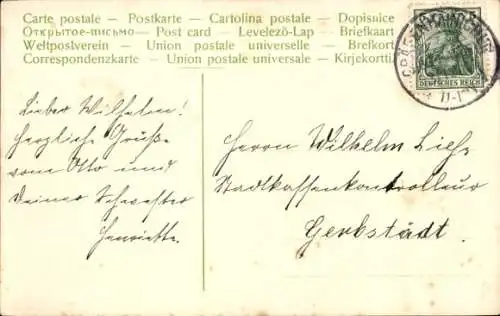 Carte postale – Postkarte – Cartolina postale – Dopisnice
Открытое-письмо – Post card – Levelező-Lap – Briefkaart
Weltpostverein – Union postale universelle – Brefkort
Correspondenzkarte – Union postale universale – Kirjekortti
DEUTSCHES REICH
Lieber Wilhelm!
Herzliche Grüße
vom Otto und
Deiner Schwester
Henriette.
Herrn Wilhelm
Stadtkassenkontrolleur
Gerbstädt.